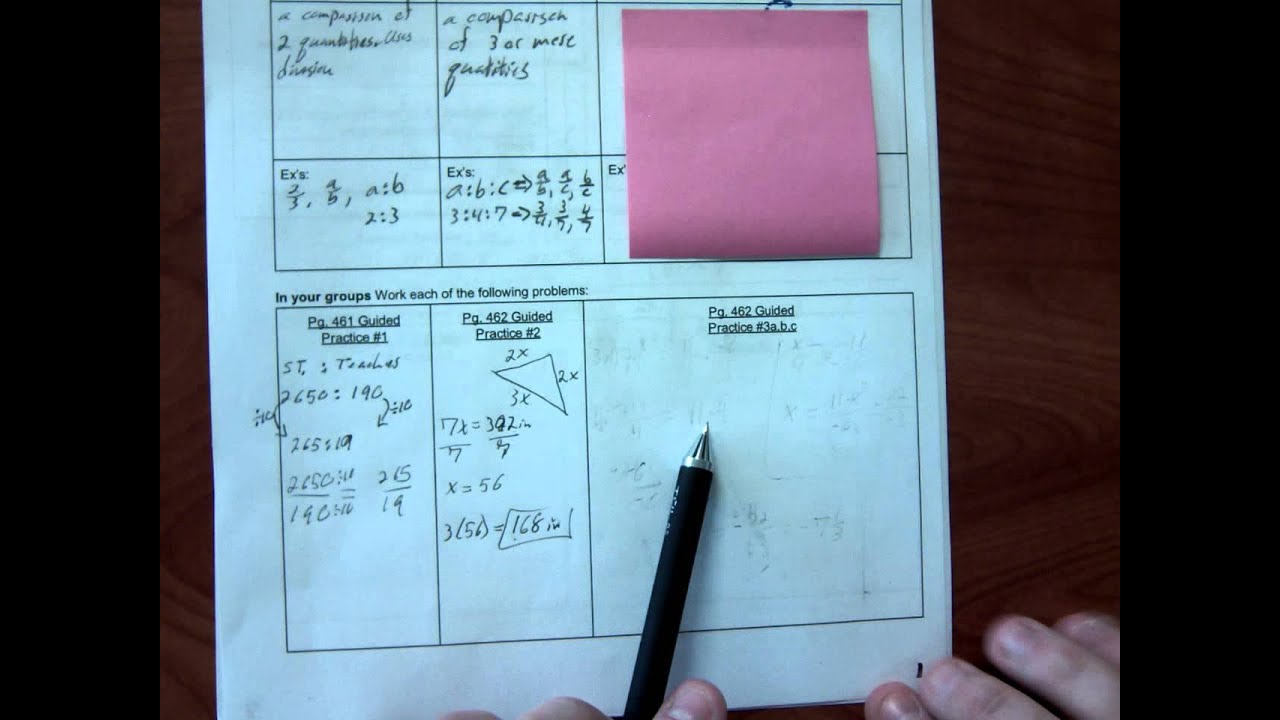 a comparison of
2 quantities. Uses
division
a comparison
of 3 or more
quatities
Ex's:
2/3, a/b, a:b
2:3
Ex's:
a:b:c => a/b, a/c, b/c
3:4:7 => 3/4, 3/7, 4/7
Ex'
In your groups Work each of the following problems:
Pg. 461 Guided
Practice #1
ST. : Teaches
2650 : 190
÷10 ÷10
265:19
2650÷10/190÷10 = 265/19
Pg. 462 Guided
Practice #2
2x
2x
3x
7x/7 = 392in/7
x = 56
3(56) = 168 in
Pg. 462 Guided
Practice #3a.b.c